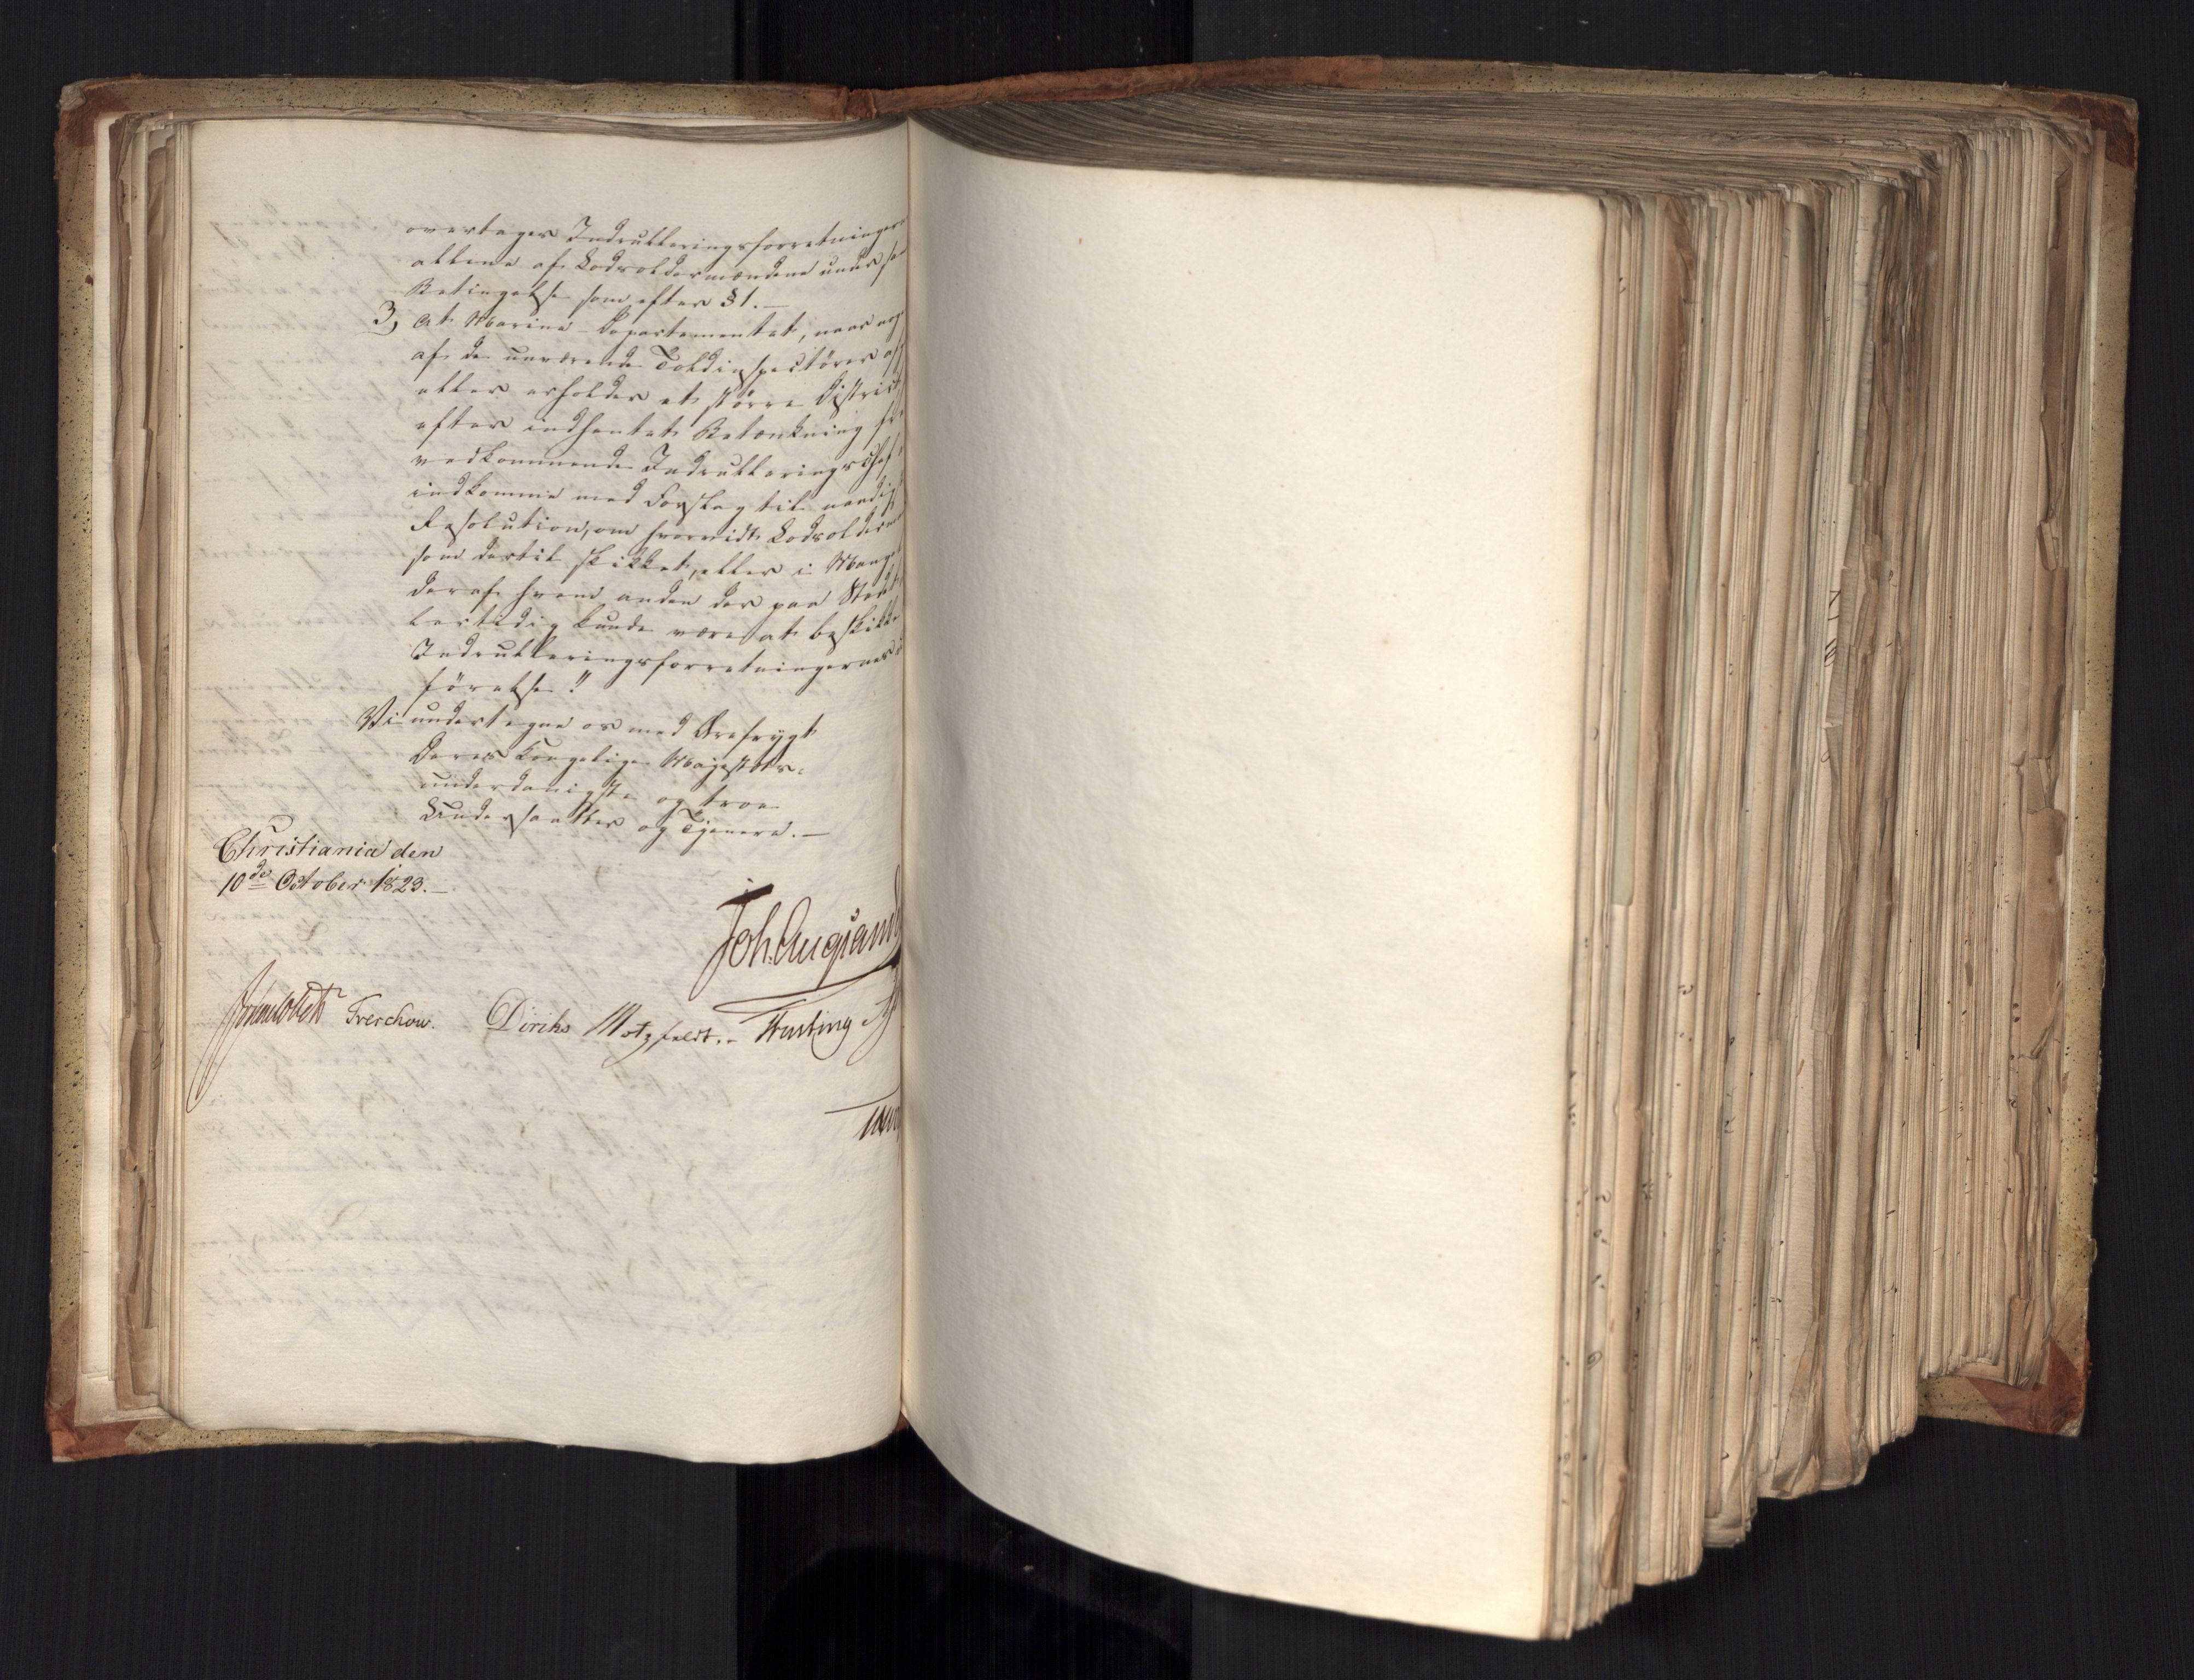 overtages Indrulleringsforretningern
allene af Lodsoldermændene under sa
Betingelse som efter §1.—
3, At Marine-Departementet, naar nog
af de nuværende Toldinspecteurer af
eller erholder et større District
efter indhentet Betænkning fr
vedkommende Indrulleringschef
indkomme med Forslag til naadig
Resolution, om hvorvidt Lodsolderm
som dertil skikket, eller i Mang
deraf hvem anden der paa Sted
 kunde være at beskikke
Indrulleringsforretningernes
førelse!!
Vi undertegne os med Ærefrygt
Deres Kongelige Majestæts.
underdanigste og troe
Undersaatter og Tjenere.—
Christiania den
10de October 1823.—
Joh. Aug: Sand
Sommerhielm Treschow. Diriks Motzfeldt.. Fasting